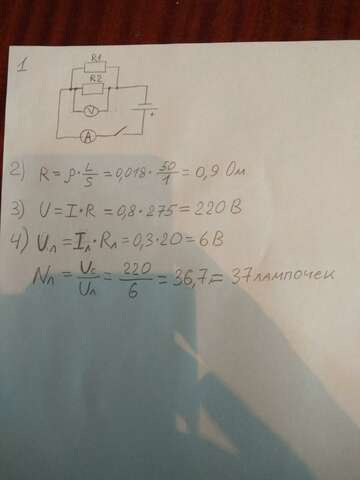 1
R1
R2
V
A
+
2) R = ρ · L/S = 0,018 · 50/1 = 0,9 Ом
3) U = I · R = 0,8 · 275 = 220 В
4) Uл = Iл · Rл = 0,3 · 20 = 6 В
Nл = Uc/Uл = 220/6 = 36,7 = 37 лампочек